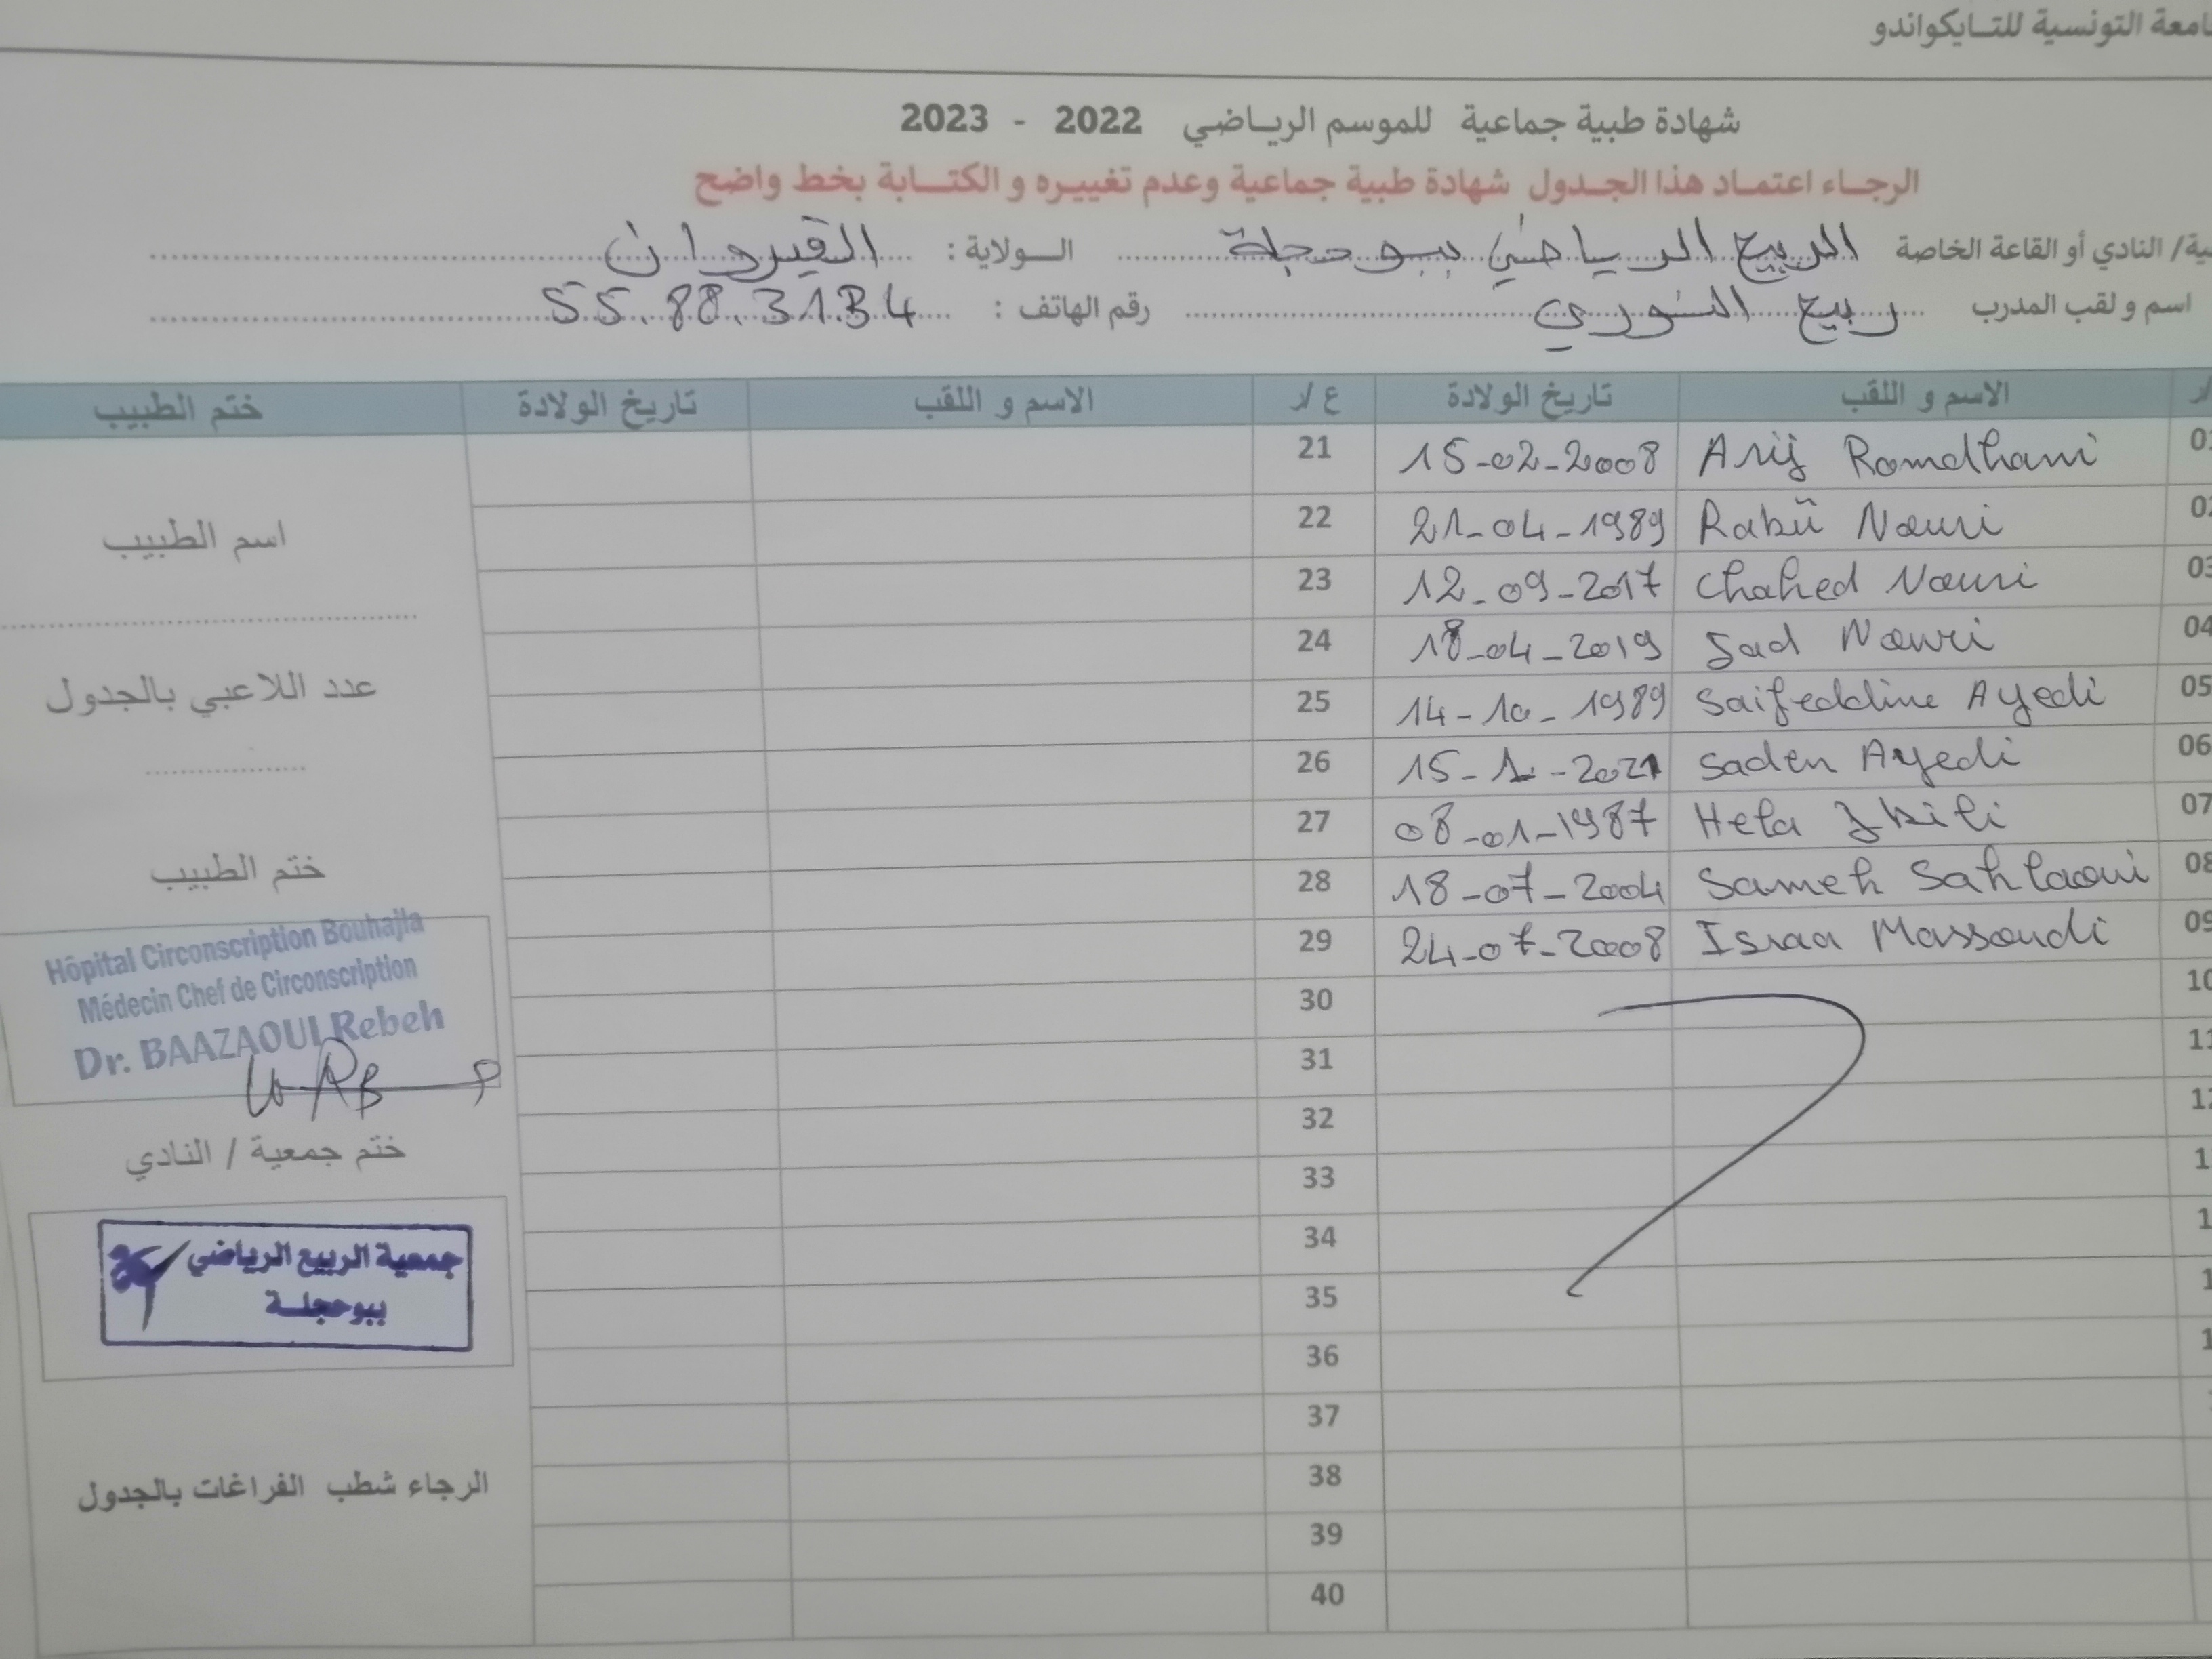 الجامعة التونسية للتــايكواندو
شهادة طبية جماعية للموسم الريــاضي 2022 - 2023
الرجــاء اعتمــاد هذا الجــدول شهادة طبية جماعية وعدم تغييـره و الكتـــابة بخط واضح
النادي أو القاعة الخاصة الربيع الرياضي ببوحجلة الــولاية : القيروان
اسم و لقب المدرب ربيع النوري رقم الهاتف : 55.88.31.34
الاسم و اللقب تاريخ الولادة ع /ر الاسم و اللقب تاريخ الولادة ختم الطبيب
01 Arij Romdhani 15-02-2008 21
02 Rabii Nouri 21-04-1989 22
03 Chahed Nouri 12-09-2017 23
04 Jad Nouri 18-04-2019 24
05 Saifeddine Ayedi 14-10-1989 25
06 Saden Ayedi 15-1-2021 26
07 Hela Jkili 08-01-1987 27
08 Sameh Sahlaoui 18-07-2004 28
09 Israa Massoudi 24-07-2008 29
10 30
11 31
12 32
33
34
35
36
37
38
39
40
اسم الطبيب
عدد اللاعبي بالجدول
ختم الطبيب
Hôpital Circonscription Bouhajla
Médecin Chef de Circonscription
Dr. BAAZAOUI Rebeh
ختم جمعية / النادي
جمعية الربيع الرياضي
ببوحجلــة
الرجاء شطب الفراغات بالجدول